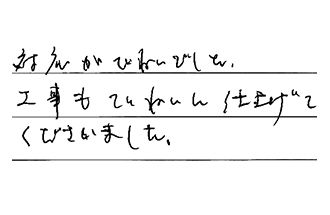 対応がていねいでした。
工事もていねいに仕上げて
くださいました。